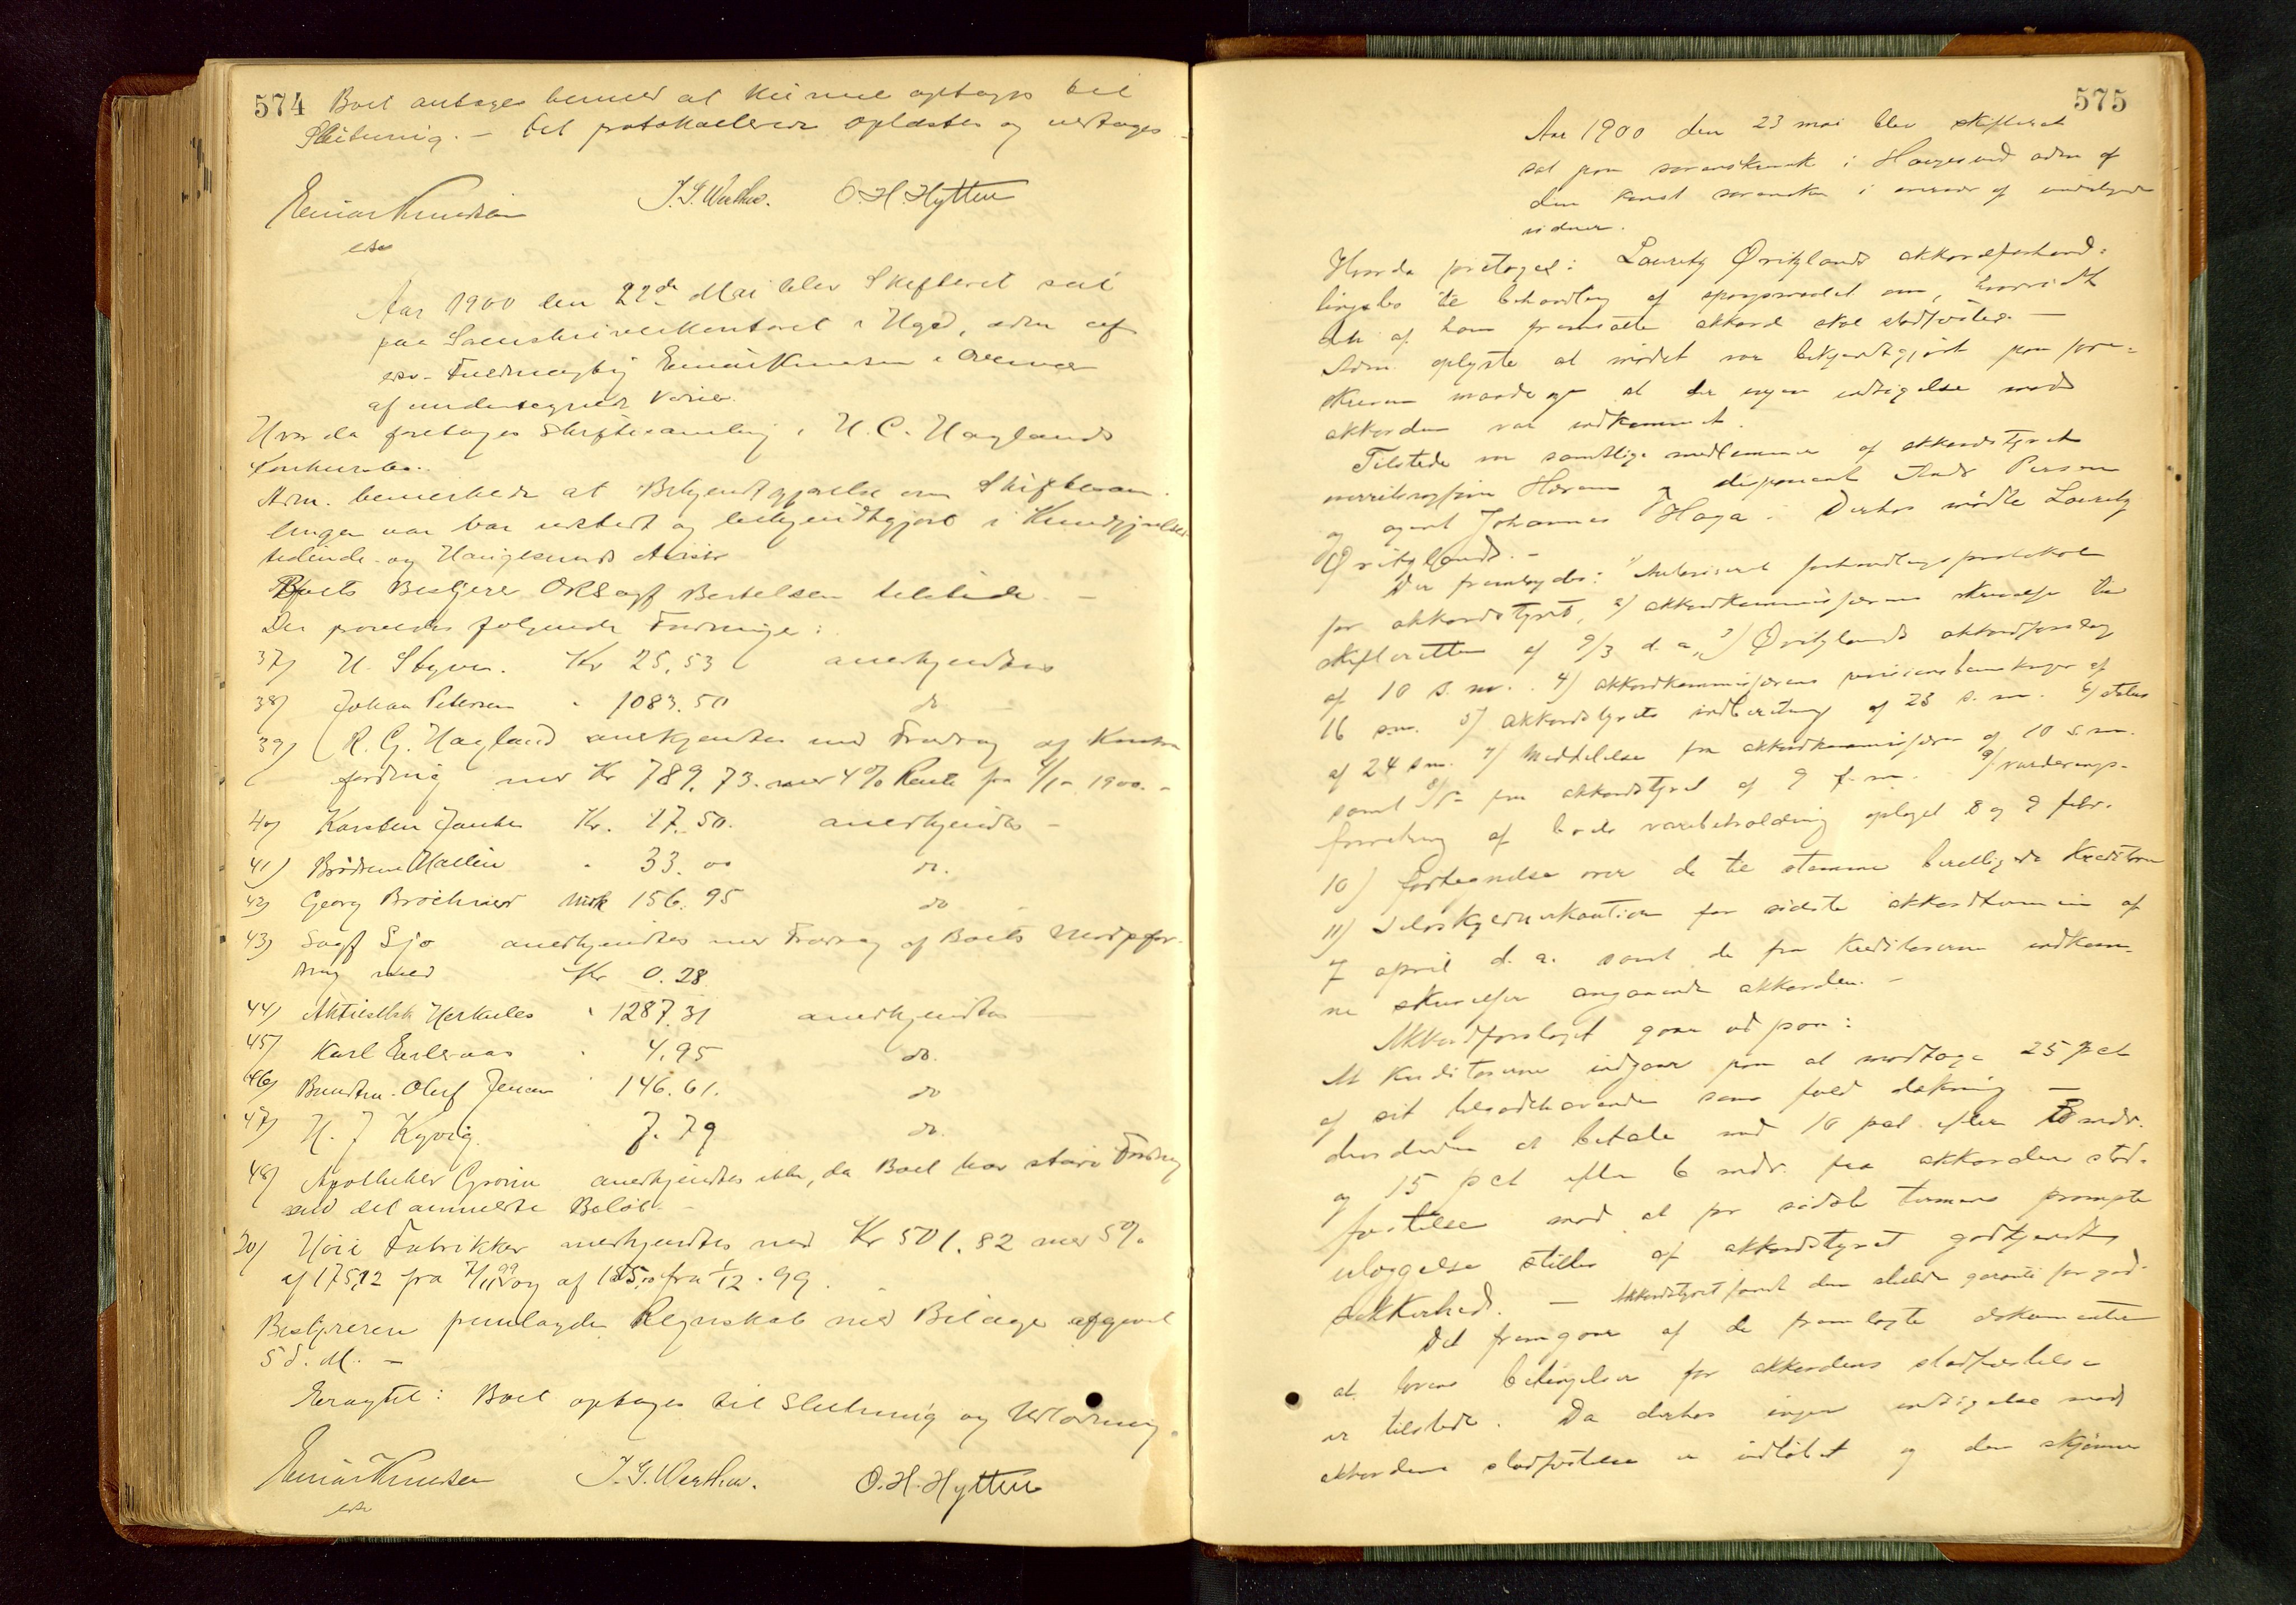 574
Boet antages hermed at kunne optages til
Slutning. – Det protokollerede oplæstes og vedtages.
Einar Knudsen J. G. Wathne. O. H. Hytten
cst
Aar 1900 den 22de Mai blev Skifteret sat
paa Sorenskriverkontoret i Hgsd, adm af
edsv. Fuldmægtig Einar Knudsen i Overvær
af undertegnede Vidner.
Hvor da foretoges Skiftesamling i H. C. Haglands
Konkursbo.
Adm. bemerkede at Bekjendtgjørelse om Skiftesam-
lingen var udstedt og bekjendtgjort i Kundgjørelses-
tidende og Haugesunds Aviser
Boets Bestyrer ORSagf Bertelsen tilstede. –
Der prøvedes følgende Fordringer:
37) H. Styve. Kr 25,53 anerkjendtes
38) Johan Petersen " 1083.50 do
39) R. G. Hagland anerkjendtes med Fradrag af Kontra
fordring med Kr 789,73. med 4% Rente fra 4/1 1900. –
40) Karsten Kr. 17.50. anerkjendtes –
41) Brødrene Hallén " 33.00 do.
42) Georg Bröchner Mrk 156.95 do
43) Sagf Sjo anerkjendtes med Fradrag af Boets Modfor-
dring med Kr 0.28
44) Aktieselsk Herkules " 1287.31 anerkjendtes
45) Karl " 4.95 do.
46) Oluf Jensen " 146.61. do
47) H. J Kyvig. 7.79 do.
48) Apotheker Grønn anerkjendtes ikke, da Boet har større Fordring
end det anmeldte Beløb. –
20) Höie Fabrikker anerkjendtes med Kr 501.82 med 5%
af 175,12 fra 7/11 99 og af fra 1/12 . 99.
Bestyreren fremlagde Regnskab med Bilage afgivet
5 d. M. –
Eragtet: Boet optages til Slutning og Udlodning.
Einar Knudsen J. G. Wathne. O. H. Hytten
cst
575
Aar 1900 den 23 mai blev skifteret
sat paa sorenskriverk i Haugesund adm af
den konst sorenskr i overvær af undertegnede
vidner.
Hvorda foretoges: Lauritz Qvitzlands akkordforhand-
lingsbo til behandling af spørgsmaalet om, hvorvidt
den af ham fremsatte akkord skal stadfæstes. –
Adm. oplyste at mødet var bekjendtgjort paa fore-
skreven maade og at der ingen indsigelse mod
akkorden var indkommet.
Tilstede var samtlige medlemmer af akkordstyret
overretssagfører og disponent Persson
og agent Johannes Haga. Derhos mødte Lauritz
Qvitzland. –
Der fremlagdes: 1) Autoriseret forhandlingsprotokol
for akkordstyret, 2) akkordkommissærens skrivelse til
skifteretten af 9/3 d. a., 3) Qvitzlands akkordforslag
af 10 s. m. . 4) akkordkommissærens af
16 s.m. 5) akkordstyrets indberetning af 23 s. m. 6) status
af 24 s.m. 7) Meddelelse fra akkordkommissæren af 10 s m.
samt 8) do fra akkordstyret af 9 f. m. 9) vurderings-
forretning af boets varebeholdning optaget 8 og 9 febr.
10) fortegnelse over de til at stemme berettigede kreditorer
11) Selvskyldnerkaution for sidste akkordtermin af
7 april d. a. samt de fra kreditorerne indkom-
ne skrivelser angaaende akkorden. –
Akkordforslaget gaar ud paa:
At kreditorerne indgaar paa at modtage 25 pct
af sit tilgodehavende som fuld dækning –
at betale med 10 pct efter 3 mdr.
og 15 pct efter 6 mdr. fra akkordens stad-
fæstelse mod at for sidste termins prompte
erlæggelse stilles af akkordstyret godkjendt
sikkerhed. – Akkordstyret fandt den stillede garanti for god.
Det fremgaar af de fremlagte dokumenter
at lovens betingelser for akkordens stadfæstelse
er tilstede. Da derhos ingen indsigelse mod
akkordens stadfæstelse er indløbet og den skjønnes